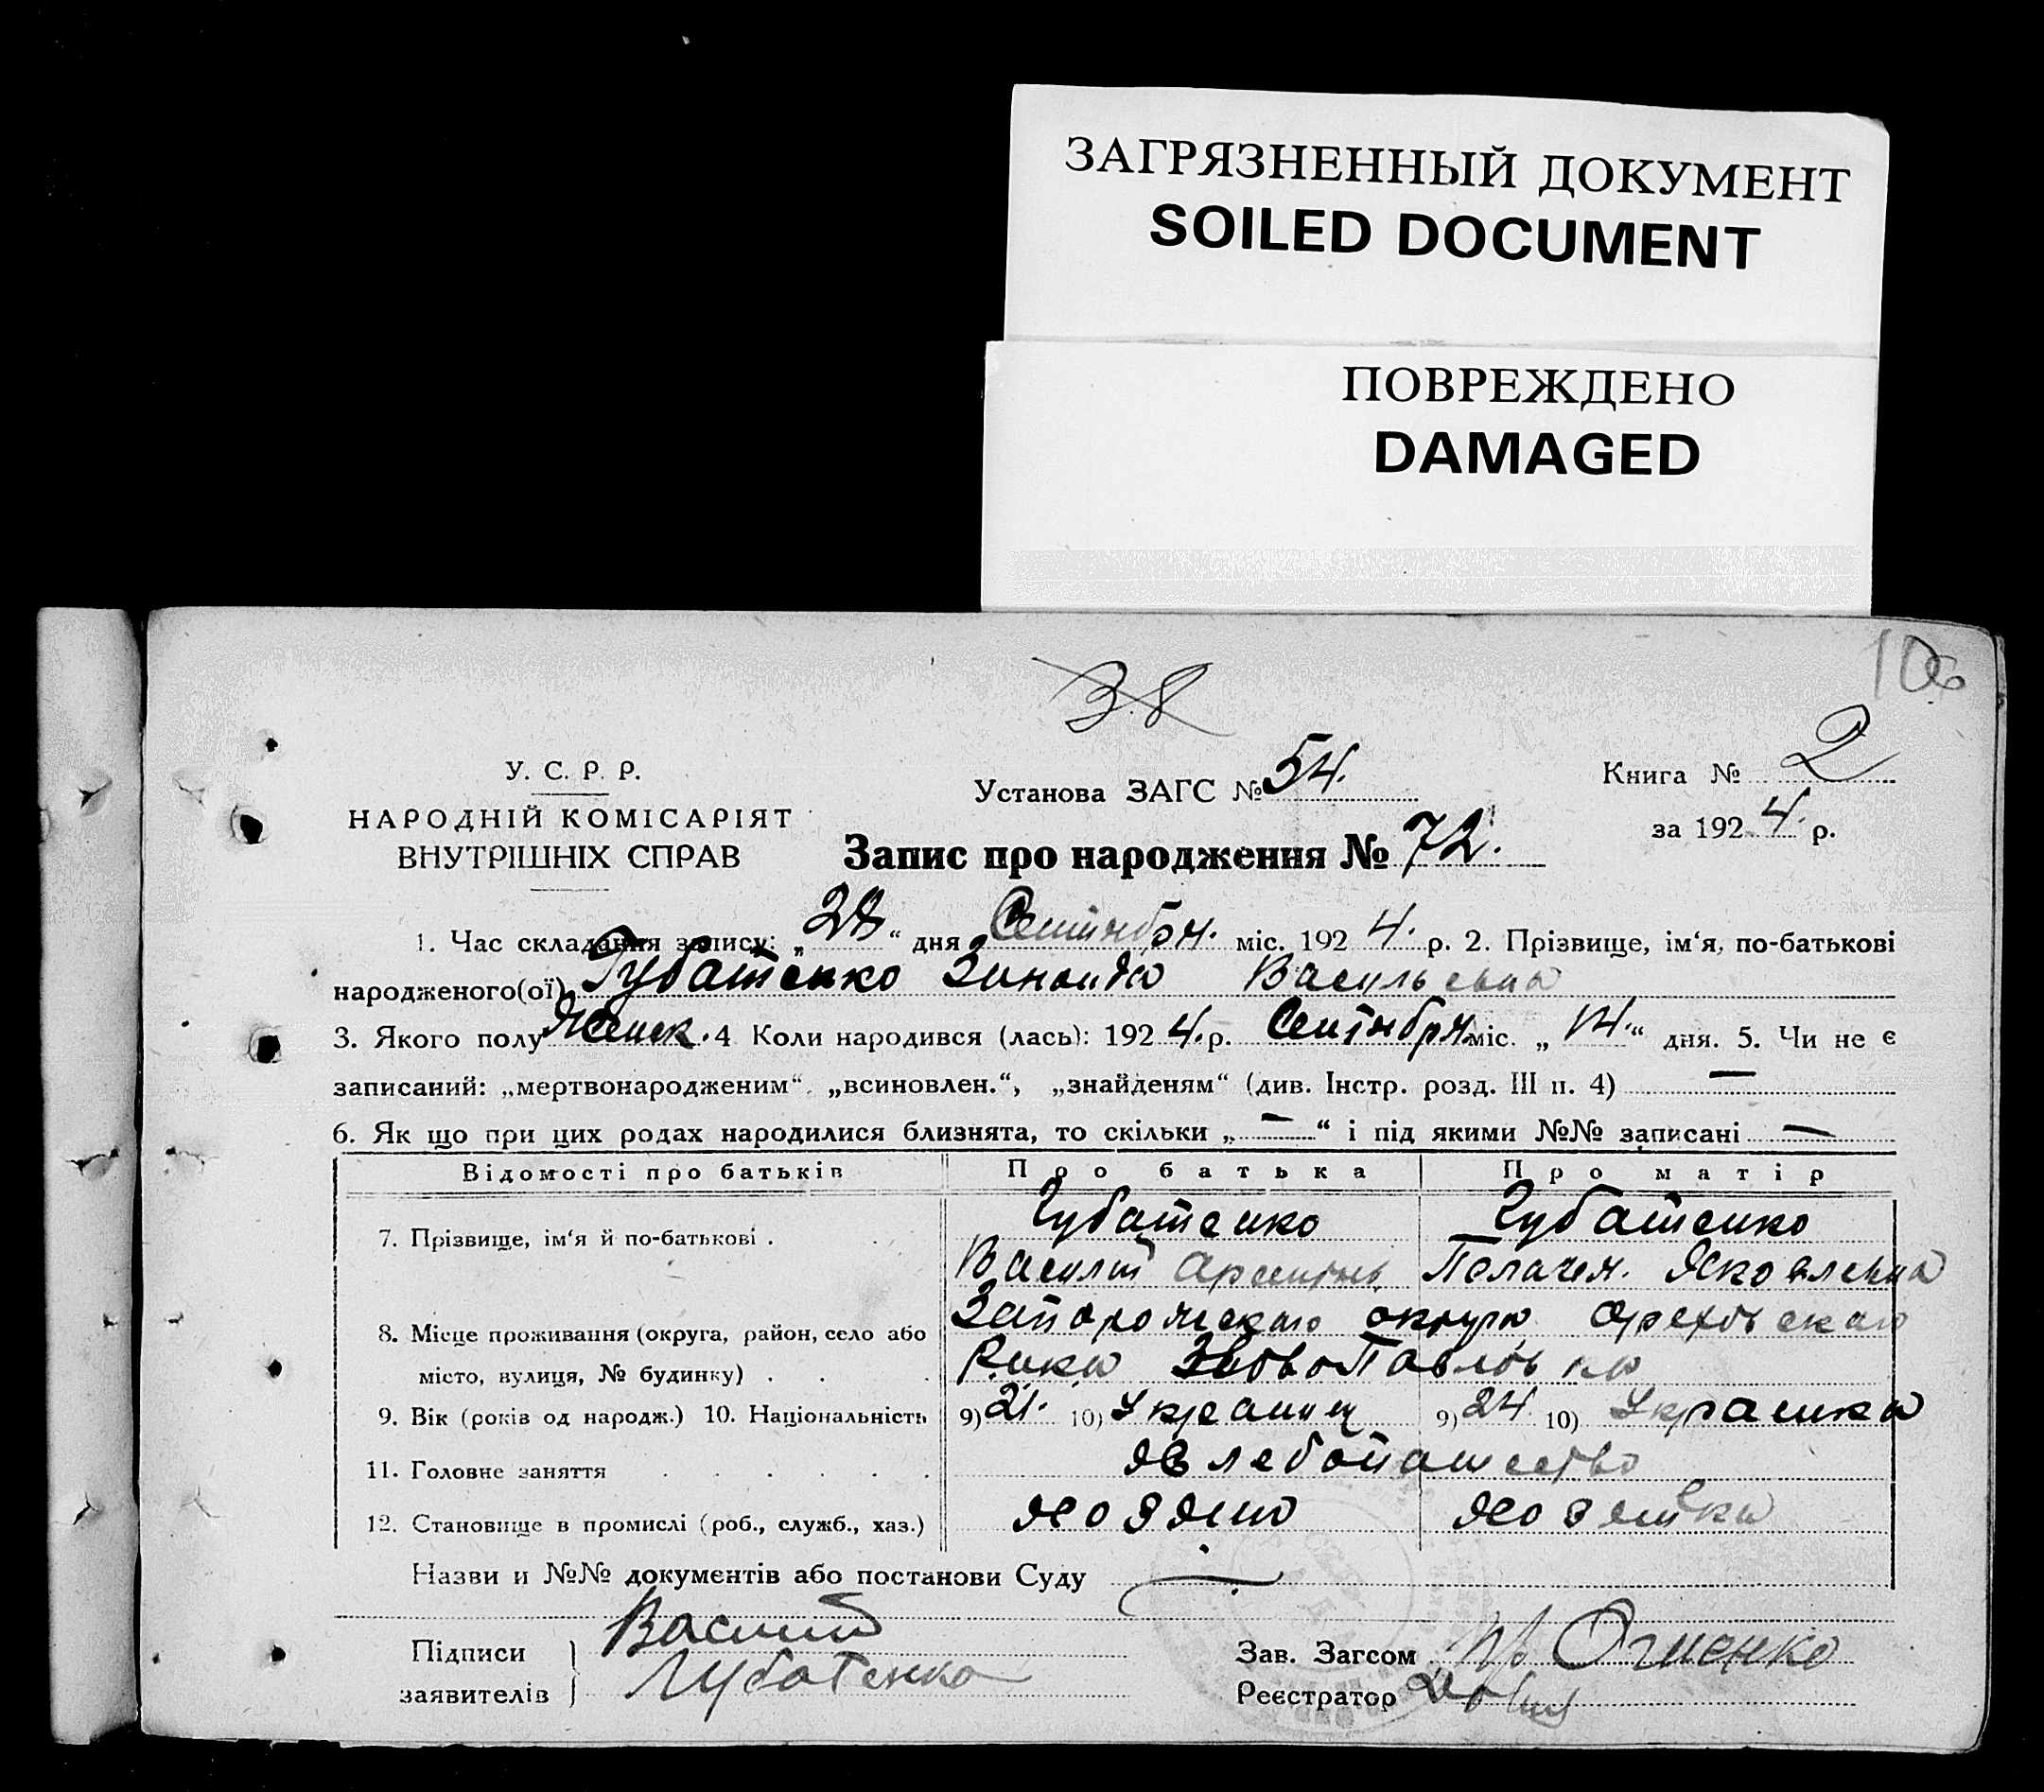 ЗАГРЯЗНЕННЫЙ ДОКУМЕНТ
SOILED DOCUMENT
ПОВРЕЖДЕНО
DAMAGED
106
38
У. С. Р. Р.
НАРОДНІЙ КОМІСАРІЯТ
ВНУТРІШНІХ СПРАВ
Установа ЗАГС № 54.
Книга № 2
за 1924. р.
Запис про народження № 72.
1. Час складання запису: „28“ дня Сентября. міс. 1924. р. 2. Прізвище, ім‘я, по-батькові
народженого(ої) Губатенко Зинаида Васильевна
3. Якого полу Женск. 4 Коли народився (лась): 1924. р. Сентября. міс. „14.“ дня. 5. Чи не є
записаний: „мертвонародженим“, „всиновлен.“, „знайденям“ (див. Інстр. розд. III п. 4) —
6. Як що при цих родах народилися близнята, то скільки „—“ і під якими №№ записані —
Відомості про батьків Про батька Про матір
7. Прізвище, ім‘я й по-батькові . Губатенко Губатенко
Василий Пелагея. Яковлевна
8. Місце проживання (округа, район, село або Запорожскаго округа Ореховскаго
місто, вулиця, № будинку) . . . Р-ка НовоПавловка
9. Вік (років од народж.) 10. Національність 9) 21. 10) Украинец 9) 24 10) Украинка
11. Головне заняття . . . . . . Хлебопашество
12. Становище в промислі (роб., служб., хаз.) хозяин хозяйка
Назви и №№ документів або постанови Суду —
Підписи Василий
заявителів Губатенко
Зав. Загсом Огиенко
Реєстратор